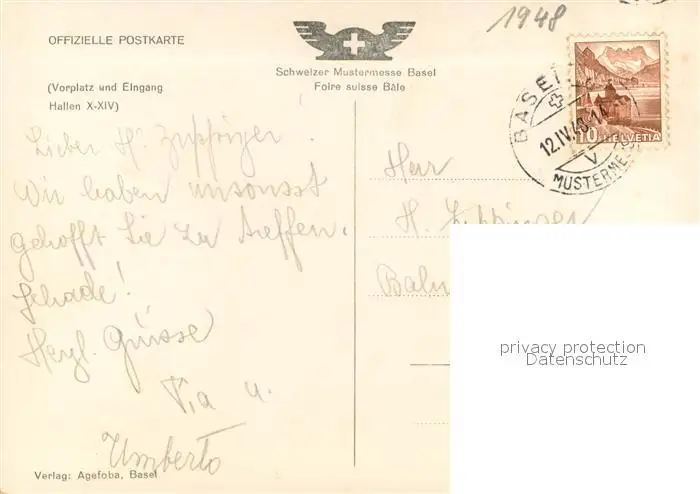 1948
OFFIZIELLE POSTKARTE
Schweizer Mustermesse Basel
Foire suisse Bâle
(Vorplatz und Eingang
Hallen X-XIV)
BASEL
12.IV.48-14
V
MUSTERMES
10 HELVETIA
Lieber Hr. Zuppiger!
Wir haben umsonst
gehofft Sie zu treffen.
Schade!
Herzl. Grüsse
Pia u.
Umberto
Herr
H. Zuppinger
Bahn
privacy protection
Datenschutz
Verlag: Agefoba, Basel